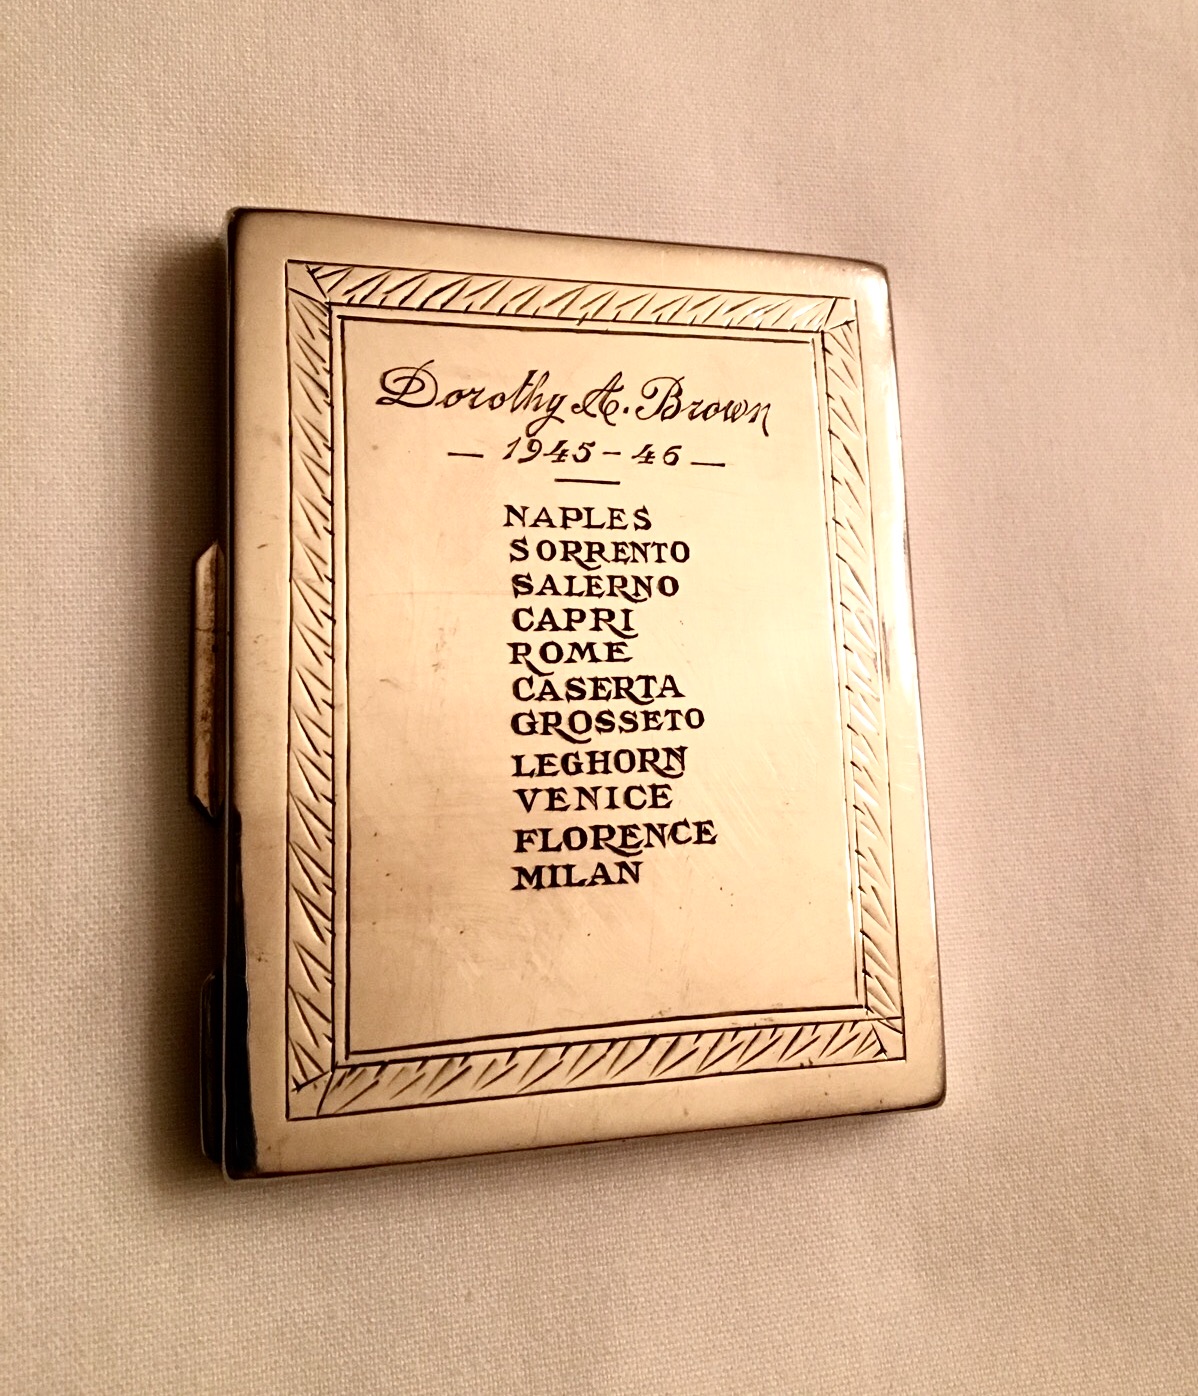 Dorothy A. Brown
— 1945 - 46 —
NAPLES
SORRENTO
SALERNO
CAPRI
ROME
CASERTA
GROSSETO
LEGHORN
VENICE
FLORENCE
MILAN